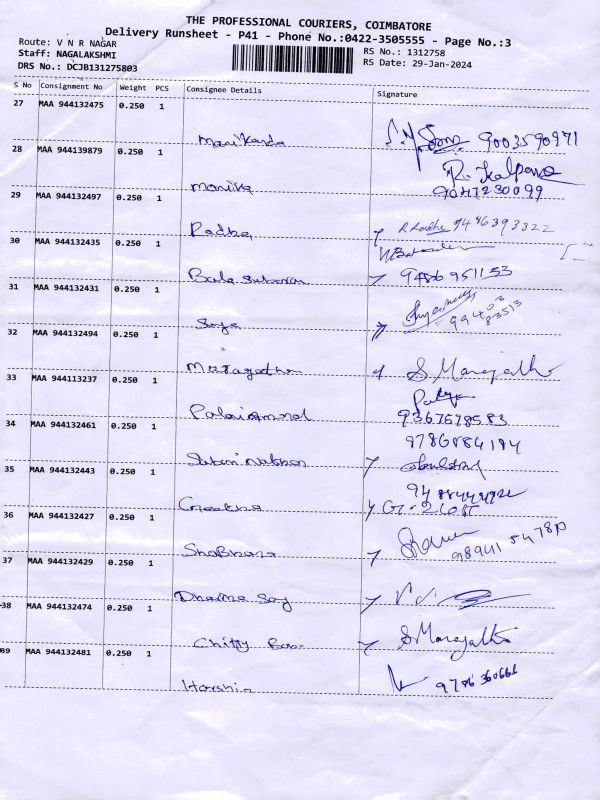 THE PROFESSIONAL COURIERS, COIMBATORE
Delivery Runsheet - P41 - Phone No.:0422-3505555 - Page No.:3
Route: V N R NAGAR
Staff: NAGALAKSHMI
DRS No.: DCJB131275803
RS No.: 1312758
RS Date: 29-Jan-2024
S No Consignment No Weight PCS Consignee Details Signature
27 MAA 944132475 0.250 1
Manikanda 9003590971
28 MAA 944139879 0.250 1 R. Kalpana
Monika 9047230099
29 MAA 944132497 0.250 1
Radha 9486393322
30 MAA 944132435 0.250 1
Bala Subaran 9486951153
31 MAA 944132431 0.250 1
Soya 99403 83513
32 MAA 944132494 0.250 1
S Marayatha
33 MAA 944113237 0.250 1
Palaiammal 9367578583
34 MAA 944132461 0.250 1 9786884184
35 MAA 944132443 0.250 1
Geetha
36 MAA 944132427 0.250 1
Shabhana
37 MAA 944132429 0.250 1
38 MAA 944132474 0.250 1
Chitty Babu S Marayatha
39 MAA 944132481 0.250 1
Harshin 9786360666